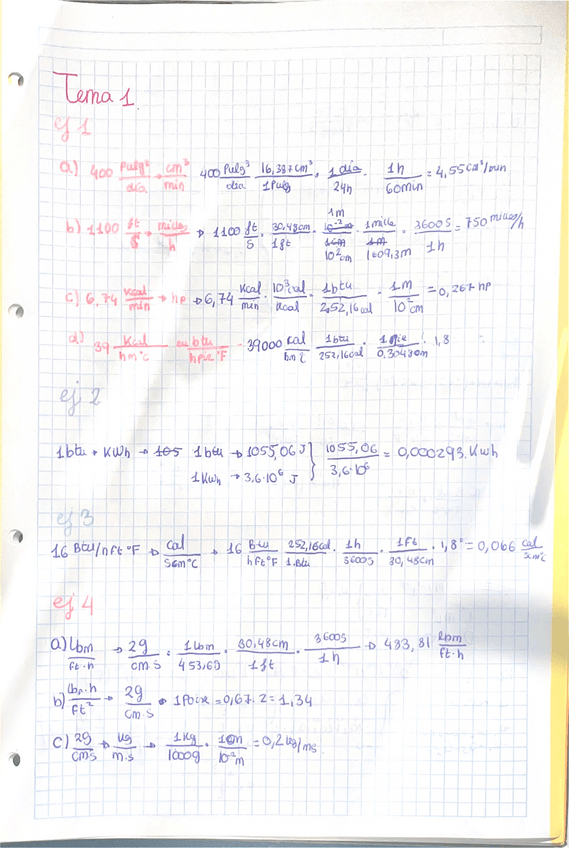 Tema 1.
ej 1
a) 400 pulg³/día → cm³/min 400 pulg³/dia · 16,387cm³/1pulg · 1 día/24h · 1h/60min = 4,55 cm³/min
b) 1100 ft/s → millas/h → 1100 ft/s · 30,48cm/1ft · 1m/10²cm · 1milla/1609,3m · 3600s/1h = 750 millas/h
c) 6,74 Kcal/min → hp → 6,74 Kcal/min · 10³cal/Kcal · 1btu/252,16cal · 1m/10²cm = 0,267 hp
d) 39 Kcal/hm°C en btu/hpie°F - 39000 cal/hm°C · 1btu/252,16cal · 1pie/0,3048m · 1,8
ej 2
1btu → KWh → 105 1btu → 1055,06 J } 1055,06/3,6·10⁶ = 0,000293. Kwh
1Kwh → 3,6·10⁶ J
ej 3
16 Btu/hft°F → cal/scm°C → 16 Btu/hft°F · 252,16cal/1.Btu · 1h/3600s · 1ft/30,48cm · 1,8° = 0,066 cal/scm°C
ej 4
a) lbm/ft·h → 2g/cm·s · 1lbm/453,69 · 30,48cm/1ft · 3600s/1h → 483,81 lbm/ft·h
b) lbf·h/ft² → 2g/cm·s · 1Poise = 0,67·2 = 1,34
c) 2g/cms → kg/m·s → 1Kg/1000g · 10m/10⁻²m = 0,2 kg/ms